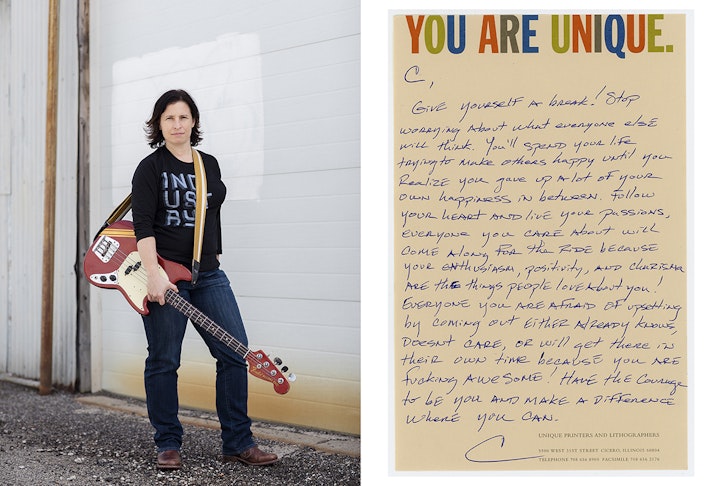 IND
UST
RY
YOU ARE UNIQUE.
C,
Give yourself a break! Stop
worrying about what everyone else
will think. You'll spend your life
trying to make others happy until you
realize you gave up a lot of your
own happiness in between. Follow
your heart and live your passions,
everyone you care about will
come along for the ride because
your enthusiasm, positivity, and charisma
are the things people love about you!
Everyone you are afraid of upsetting
by coming out either already knows,
doesnt care, or will get there in
their own time because you are
fucking awesome! Have the courage
to be you and make a difference
where you can.
C
UNIQUE PRINTERS AND LITHOGRAPHERS
WEST 31ST STREET CICERO, ILLINOIS 60804
TELEPHONE 708 656 8900 FACSIMILE 708 656 2176